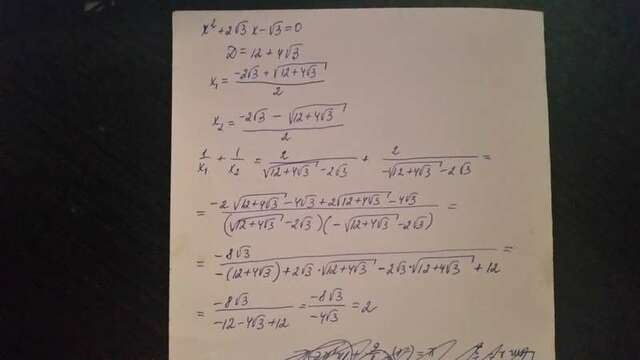 x²+2√3 x-√3=0
D=12+4√3
x₁=(-2√3+√(12+4√3))/2
x₂=(-2√3-√(12+4√3))/2
1/x₁+1/x₂=2/(√(12+4√3)-2√3)+2/(-√(12+4√3)-2√3)=
=(-2√(12+4√3)-4√3+2√(12+4√3)-4√3)/((√(12+4√3)-2√3)(-√(12+4√3)-2√3))=
=(-8√3)/(-(12+4√3)+2√3·√(12+4√3)-2√3·√(12+4√3)+12)=
=(-8√3)/(-12-4√3+12)=(-8√3)/(-4√3)=2